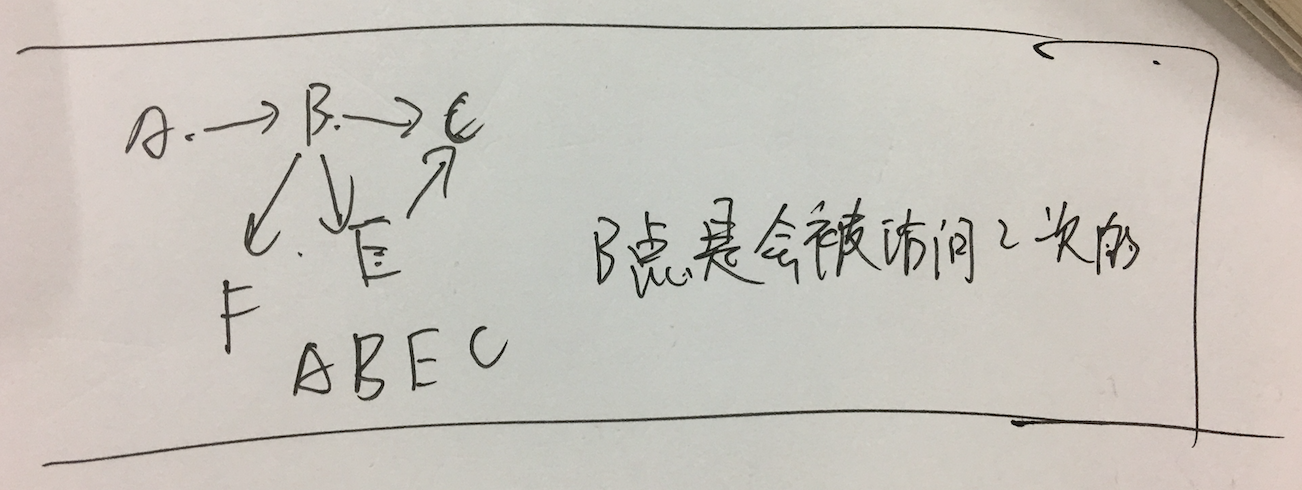 A → B → C
E
B点是会被访问2次的
F
A B E C